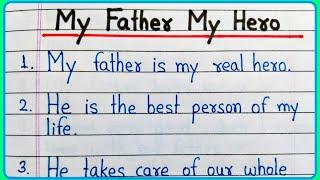 My Father My Hero
1. My father is my real hero.
2. He is the best person of my
life.
3. He takes care of our whole